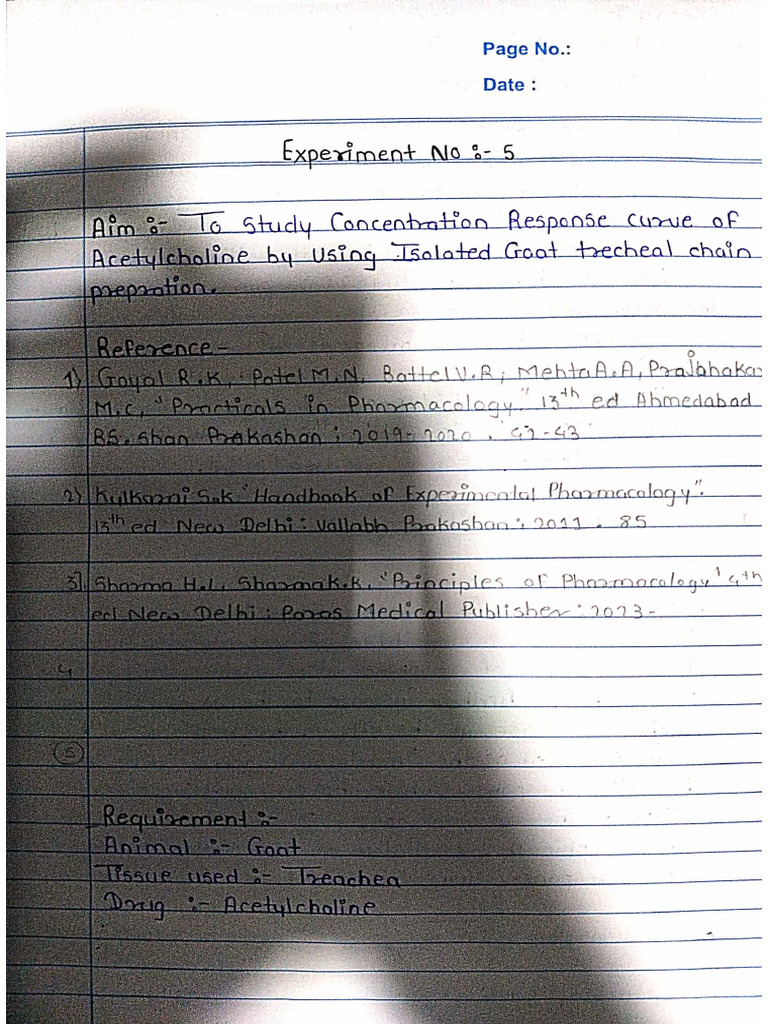 Page No.:
Date :
Experiment No :- 5
Aim :- To Study Concentration Response curve of
Acetylcholine by Using Isolated Goat trecheal chain
prepration.
Reference -
1) Goyal R.K, Patel M.N, Battel V.R, Mehta A.A, Prajbhakar
M.C, "Practicals in Pharmacology" 13th ed Ahmedabad
B.S. Shah Prakashan ; 2019-2020 . 42-43
2) Kulkarni S.k "Handbook of Experimental Pharmacology".
13th ed New Delhi : Vallabh Prakashan ; 2011 . 85
3]. Sharma H.L, Sharma K.K, "Principles of Pharmacology" 4th
ed New Delhi : Paras Medical Publisher : 2023 -
4
5
Requirement :-
Animal :- Goat
Tissue used :- Treachea
Drug :- Acetylcholine